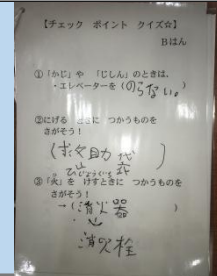 【チェック ポイント クイズ☆】
Bはん
①「かじ」や 「じしん」のときは、
・エレベーターを(のらない。)
②にげる ときに つかうものを
さがそう!
(救助袋)
③「火」を けすときに つかうものを
さがそう!
→(消火器)
↓
消火栓